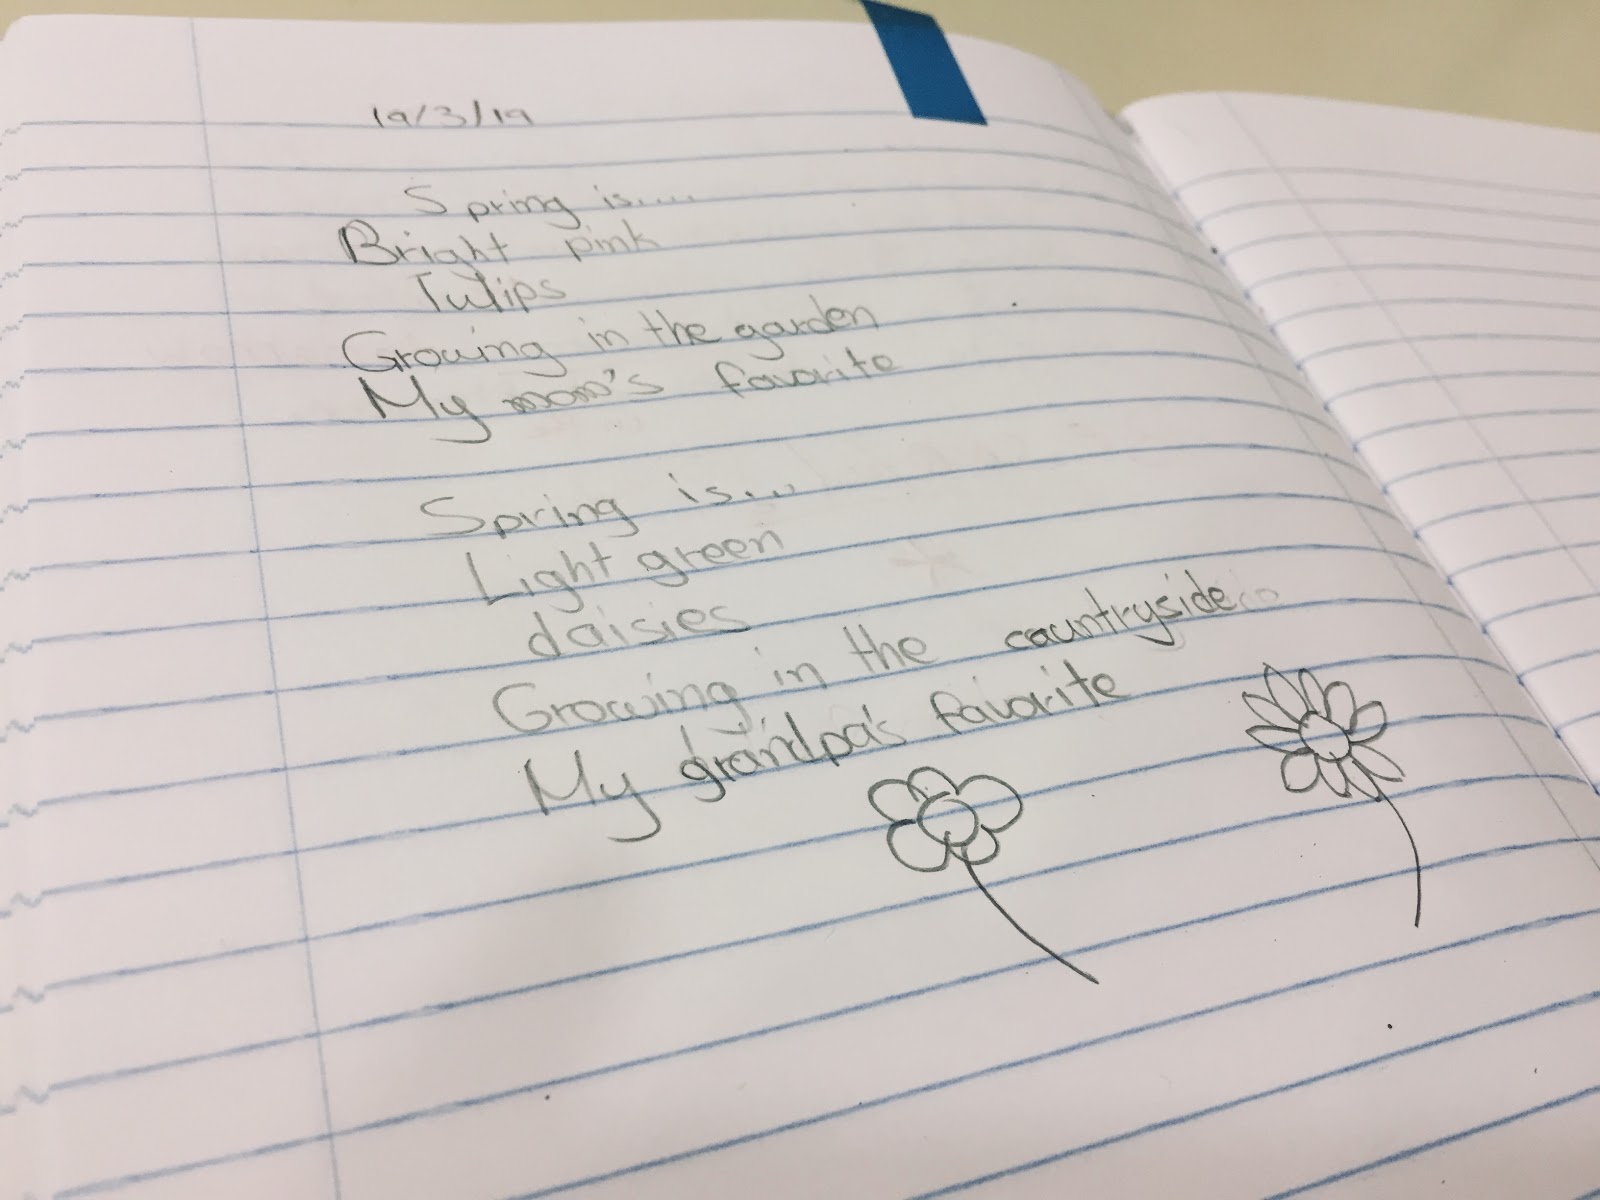 19/3/19
Spring is.....
Bright pink
Tulips
Growing in the garden
My mom's favorite
Spring is...
Light green
daisies
Growing in the countryside
My grandpa's favorite